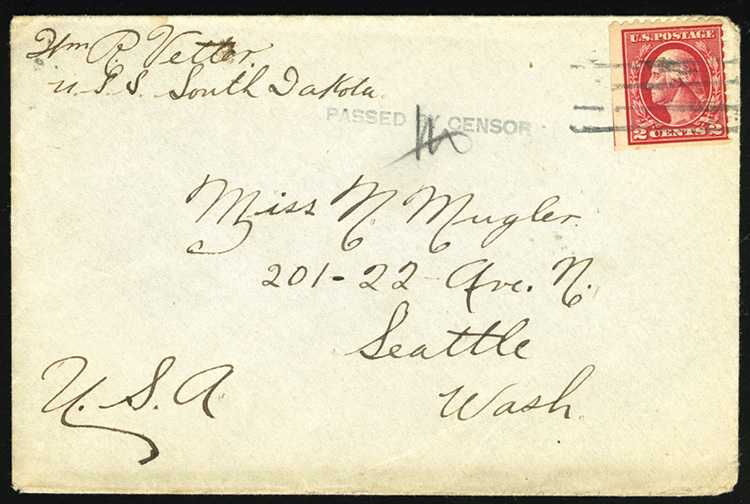 Wm R. Vetter.
U.S.S. South Dakota.
PASSED BY CENSOR
U.S. POSTAGE
2 CENTS 2
Miss N. Mugler.
201-22 Ave. N.
Seattle
Wash.
U.S.A